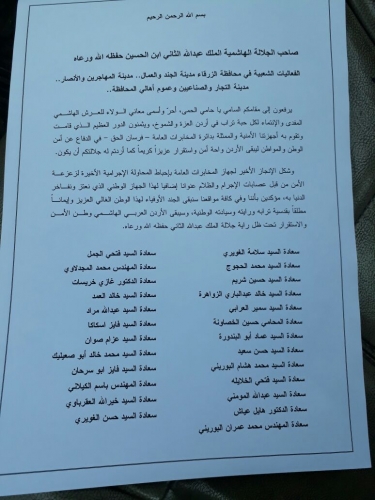 بسم الله الرحمن الرحيم
صاحب الجلالة الهاشمية الملك عبدالله الثاني ابن الحسين حفظه الله ورعاه
الفعاليات الشعبية في محافظة الزرقاء مدينة الجند والعمال.. مدينة المهاجرين والأنصار..
مدينة التجار والصناعيين وعموم أهالي المحافظة..
يرفعون إلى مقامكم السامي يا حامي الحمى، أحر وأسمى معاني الولاء للعرش الهاشمي
المفدى والإنتماء لكل حبة تراب في أردن العزة والشموخ، ويثمنون الدور العظيم الذي قامت
وتقوم به أجهزتنا الأمنية والممثلة بدائرة المخابرات العامة - فرسان الحق - في الدفاع عن
الوطن والمواطن ليبقى الأردن واحة أمن واستقرار عزيزاً كريماً كما أردتم له جلالتكم أن يكون.
وشكل الإنجاز الأخير لجهاز المخابرات العامة بإحباط المحاولة الإجرامية الأخيرة لزعزعة
الأمن من قبل عصابات الإجرام والظلام عنوانا إضافيا لهذا الجهاز الوطني الذي نعتز ونفاخر
الدنيا به، مؤكدين بأننا وفي كافة مواقعنا سنبقى الجند الأوفياء لهذا الوطن الغالي العزيز وإيماناً
مطلقاً بقدسية ترابه ورايته وسيادته الوطنية، وسيبقى الأردن العربي الهاشمي وطن الأمن
والاستقرار تحت ظل راية جلالة الملك عبدالله الثاني حفظه الله ورعاه.
سعادة السيد سلامة الغويري
سعادة السيد محمد الحجوج
سعادة السيد حسين شريم
سعادة السيد خالد عبدالباري الزواهرة
سعادة السيد سمير العرابي
سعادة المحامي حسين الخصاونة
سعادة السيد عماد أبو البندورة
سعادة السيد حسن سعيد
سعادة السيد محمد هشام البوريني
سعادة السيد فتحي الخلايله
سعادة السيد عبدالله المومني
سعادة الدكتور هايل عياش
سعادة المهندس محمد عمران البوريني
سعادة السيد فتحي الجمل
سعادة المهندس محمد المجدلاوي
سعادة الدكتور غازي خريسات
سعادة السيد خالد العمد
سعادة السيد عبدالله مراد
سعادة السيد فايز اسكاكا
سعادة السيد عزام صوان
سعادة السيد محمد خالد أبو صعيليك
سعادة السيد فايز أبو سرحان
سعادة المهندس باسم الكيلاني
سعادة السيد خيرالله العقرباوي
سعادة السيد حسن الغويري